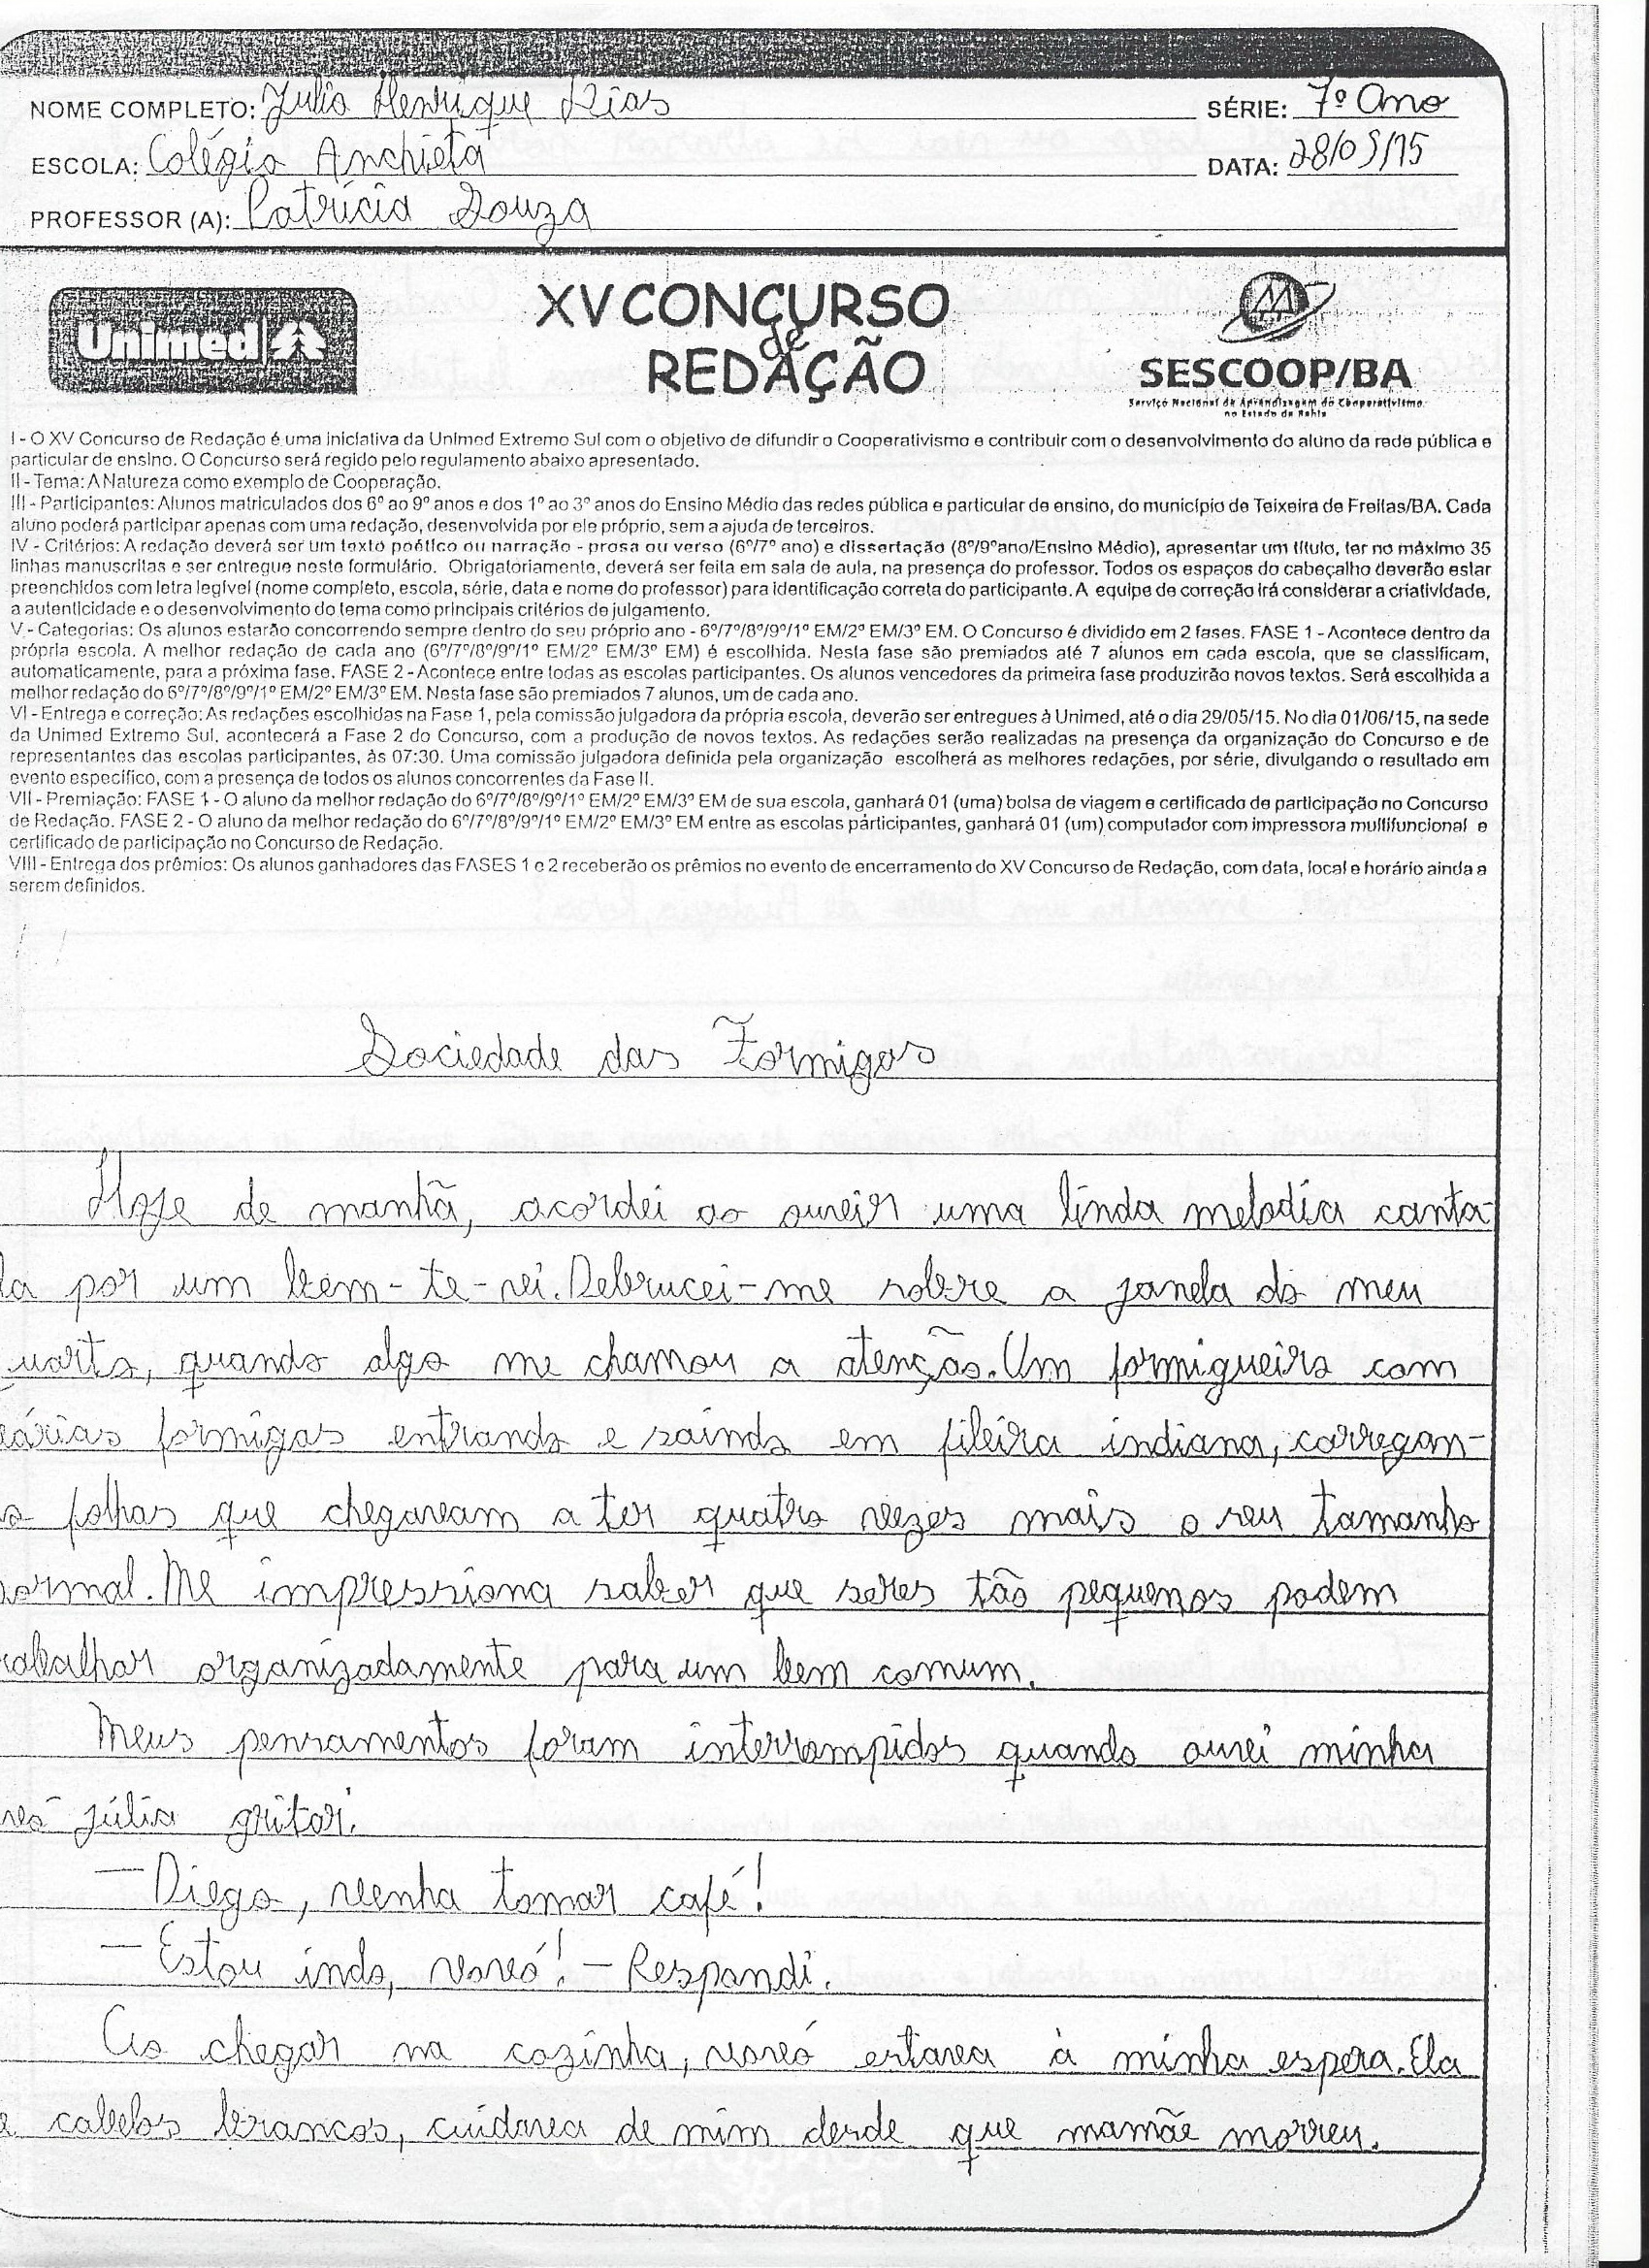 NOME COMPLETO: Julia Henrique Dias SÉRIE: 7º Ano
ESCOLA: Colégio Anchieta DATA: 28/05/15
PROFESSOR (A): Patrícia Souza
Unimed
XV CONCURSO
de
REDAÇÃO
SESCOOP/BA
Serviço Nacional de Aprendizagem do Cooperativismo
no Estado da Bahia
I - O XV Concurso de Redação é uma iniciativa da Unimed Extremo Sul com o objetivo de difundir o Cooperativismo e contribuir com o desenvolvimento do aluno da rede pública e
particular de ensino. O Concurso será regido pelo regulamento abaixo apresentado.
II - Tema: A Natureza como exemplo de Cooperação.
III - Participantes: Alunos matriculados dos 6º ao 9º anos e dos 1º ao 3º anos do Ensino Médio das redes pública e particular de ensino, do município de Teixeira de Freitas/BA. Cada
aluno poderá participar apenas com uma redação, desenvolvida por ele próprio, sem a ajuda de terceiros.
IV - Critérios: A redação deverá ser um texto poético ou narração - prosa ou verso (6º/7º ano) e dissertação (8º/9ºano/Ensino Médio), apresentar um título, ter no máximo 35
linhas manuscritas e ser entregue neste formulário. Obrigatoriamente, deverá ser feita em sala de aula, na presença do professor. Todos os espaços do cabeçalho deverão estar
preenchidos com letra legível (nome completo, escola, série, data e nome do professor) para identificação correta do participante. A equipe de correção irá considerar a criatividade,
a autenticidade e o desenvolvimento do tema como principais critérios de julgamento.
V - Categorias: Os alunos estarão concorrendo sempre dentro do seu próprio ano - 6º/7º/8º/9º/1º EM/2º EM/3º EM. O Concurso é dividido em 2 fases. FASE 1 - Acontece dentro da
própria escola. A melhor redação de cada ano (6º/7º/8º/9º/1º EM/2º EM/3º EM) é escolhida. Nesta fase são premiados até 7 alunos em cada escola, que se classificam,
automaticamente, para a próxima fase. FASE 2 - Acontece entre todas as escolas participantes. Os alunos vencedores da primeira fase produzirão novos textos. Será escolhida a
melhor redação do 6º/7º/8º/9º/1º EM/2º EM/3º EM. Nesta fase são premiados 7 alunos, um de cada ano.
VI - Entrega e correção: As redações escolhidas na Fase 1, pela comissão julgadora da própria escola, deverão ser entregues à Unimed, até o dia 29/05/15. No dia 01/06/15, na sede
da Unimed Extremo Sul, acontecerá a Fase 2 do Concurso, com a produção de novos textos. As redações serão realizadas na presença da organização do Concurso e de
representantes das escolas participantes, às 07:30. Uma comissão julgadora definida pela organização escolherá as melhores redações, por série, divulgando o resultado em
evento específico, com a presença de todos os alunos concorrentes da Fase II.
VII - Premiação: FASE 1 - O aluno da melhor redação do 6º/7º/8º/9º/1º EM/2º EM/3º EM de sua escola, ganhará 01 (uma) bolsa de viagem e certificado de participação no Concurso
de Redação. FASE 2 - O aluno da melhor redação do 6º/7º/8º/9º/1º EM/2º EM/3º EM entre as escolas participantes, ganhará 01 (um) computador com impressora multifuncional e
certificado de participação no Concurso de Redação.
VIII - Entrega dos prêmios: Os alunos ganhadores das FASES 1 e 2 receberão os prêmios no evento de encerramento do XV Concurso de Redação, com data, local e horário ainda a
serem definidos.
Sociedade das Formigas
Hoje de manhã, acordei ao ouvir uma linda melodia canta-
da por um bem-te-vi. Debrucei-me sobre a janela do meu
quarto, quando algo me chamou a atenção. Um formigueiro com
várias formigas entrando e saindo em fileira indiana, carregan-
do folhas que chegavam a ter quatro vezes mais o seu tamanho
normal. Me impressiona saber que seres tão pequenos podem
trabalhar organizadamente para um bem comum.
Meus pensamentos foram interrompidos quando ouvi minha
vó Júlia gritar.
— Diego, venha tomar café!
— Estou indo, vovó! — Respondi.
Ao chegar na cozinha, vovó estava à minha espera. Ela
e cabelos brancos, cuidava de mim desde que mamãe morreu.